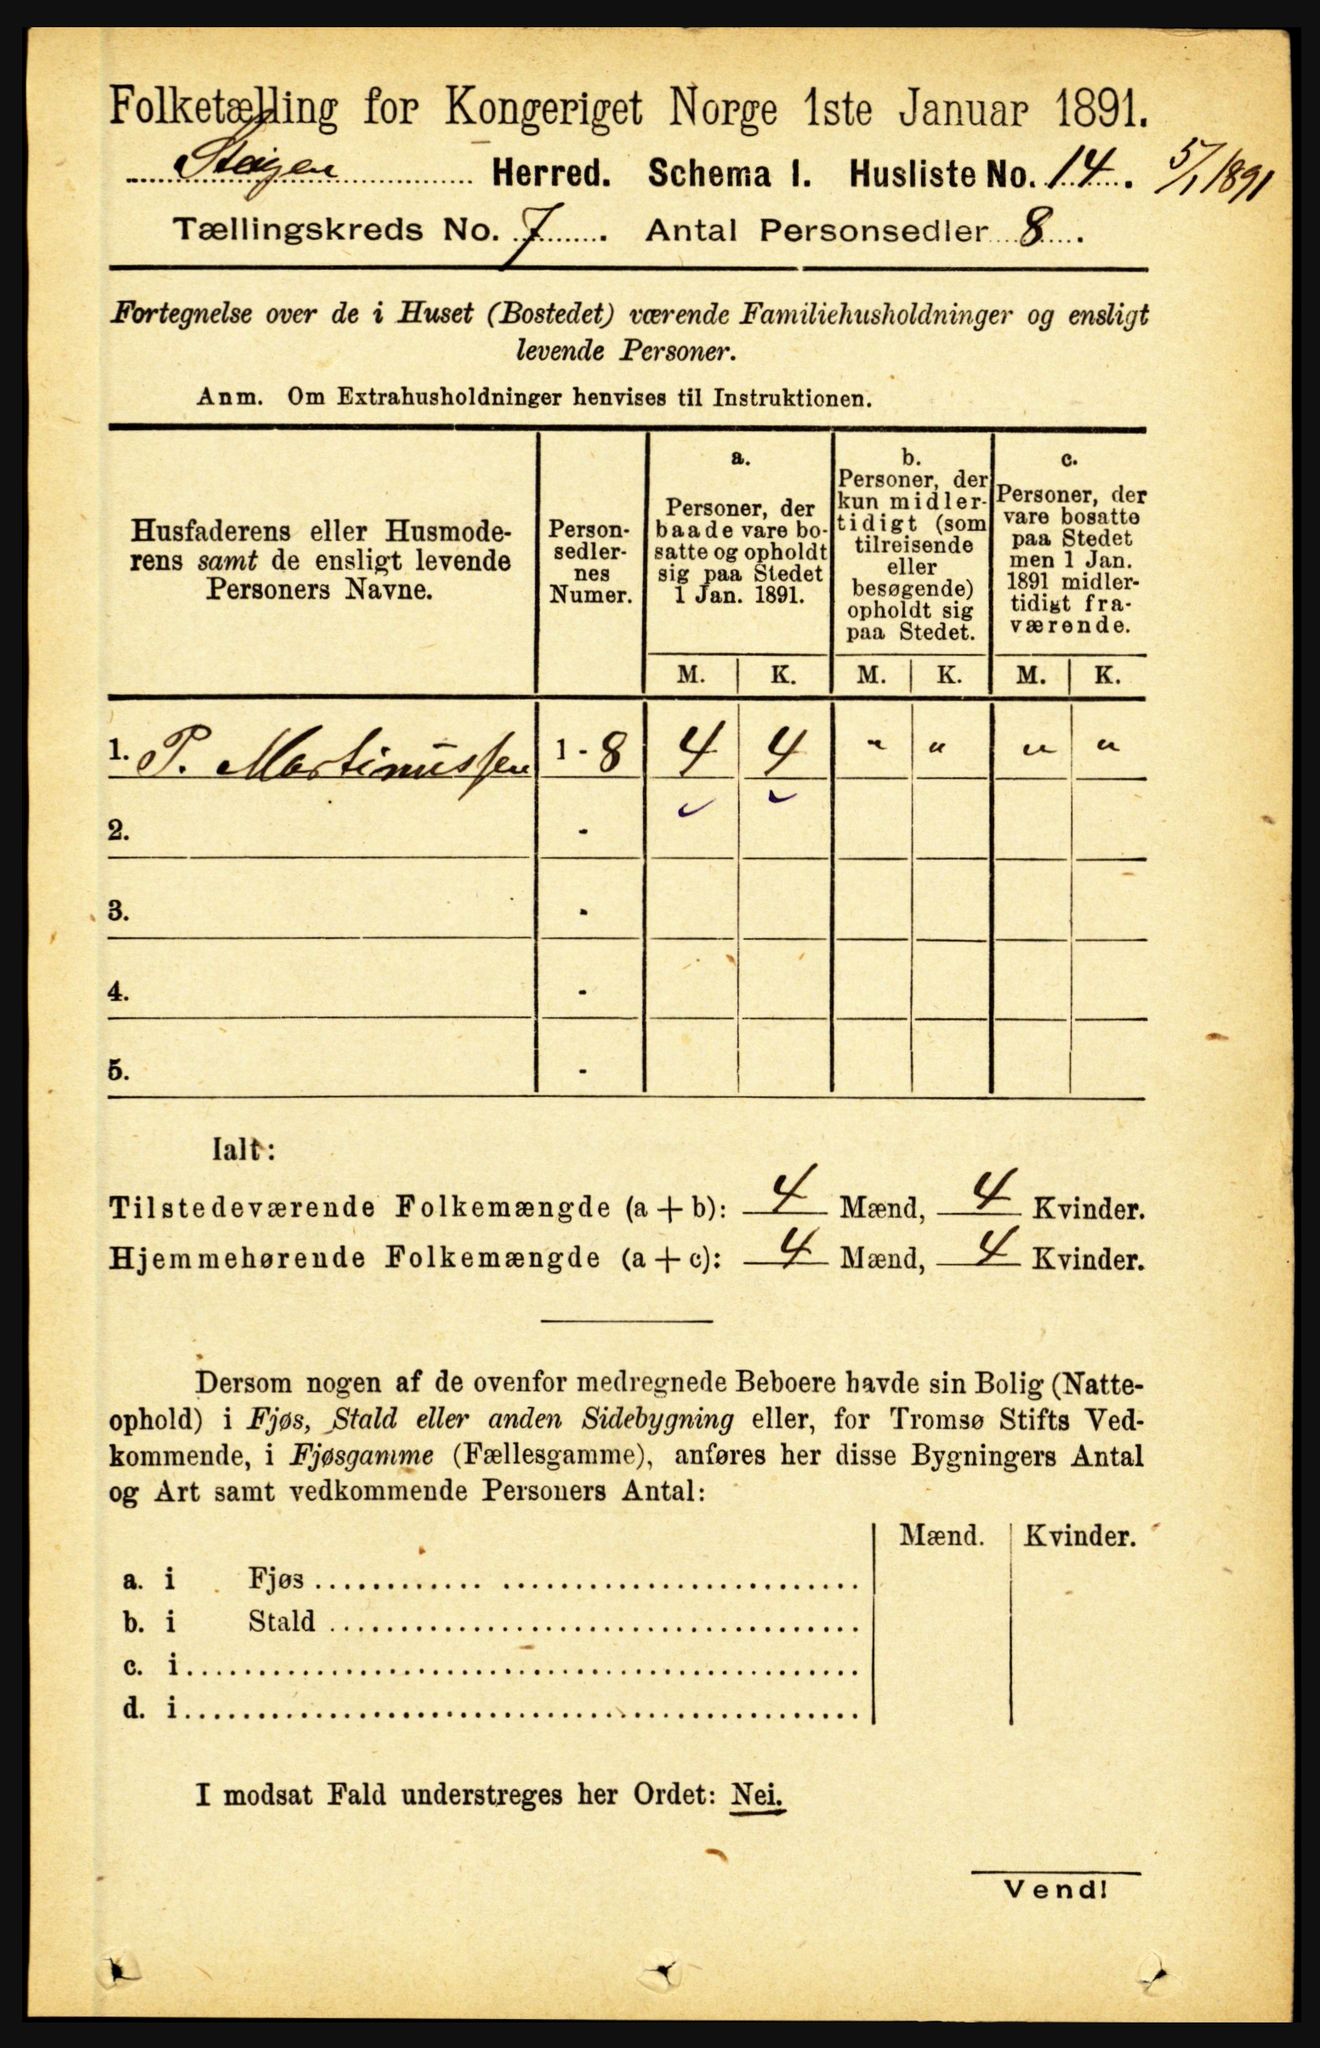 Folketælling for Kongeriget Norge 1ste Januar 1891.
Steigen Herred. Schema I. Husliste No. 14. 5/1 1891
Tællingskreds No. 7. Antal Personsedler 8.
Fortegnelse over de i Huset (Bostedet) værende Familiehusholdninger og ensligt
levende Personer.
Anm. Om Extrahusholdninger henvises til Instruktionen.
Husfaderens eller Husmode-
rens samt de ensligt levende
Personers Navne.
Person-
sedler-
nes
Numer.
a.
Personer, der
baade vare bo-
satte og opholdt
sig paa Stedet
1 Jan. 1891.
b.
Personer, der
kun midler-
tidigt (som
tilreisende
eller
besøgende)
opholdt sig
paa Stedet.
c.
Personer, der
vare bosatte
paa Stedet
men 1 Jan.
1891 midler-
tidigt fra-
værende.
M. K. M. K. M. K.
1. P. Martinussen 1 - 8 4 4 " " " "
2. -
3. -
4. -
5. -
Ialt:
Tilstedeværende Folkemængde (a + b): 4 Mænd, 4 Kvinder.
Hjemmehørende Folkemængde (a + c): 4 Mænd, 4 Kvinder.
Dersom nogen af de ovenfor medregnede Beboere havde sin Bolig (Natte-
ophold) i Fjøs, Stald eller anden Sidebygning eller, for Tromsø Stifts Ved-
kommende, i Fjøsgamme (Fællesgamme), anføres her disse Bygningers Antal
og Art samt vedkommende Personers Antal:
Mænd. Kvinder.
a. i Fjøs
b. i Stald
c. i
d. i
I modsat Fald understreges her Ordet: Nei.
Vend!